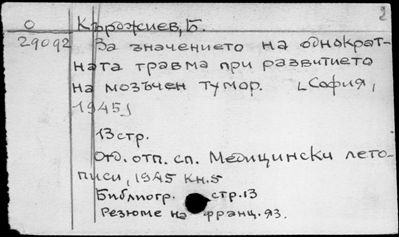 2
О Кърожиев, Б.
29092 За значението на однократ-
ната травма при развитието
на мозъчен тумор. [София,
1945]
13 стр.
Отд. отп. сп. Медицински лето-
писи, 1945 кн. 5
Библиогр. стр. 13
Резюме на франц. яз.